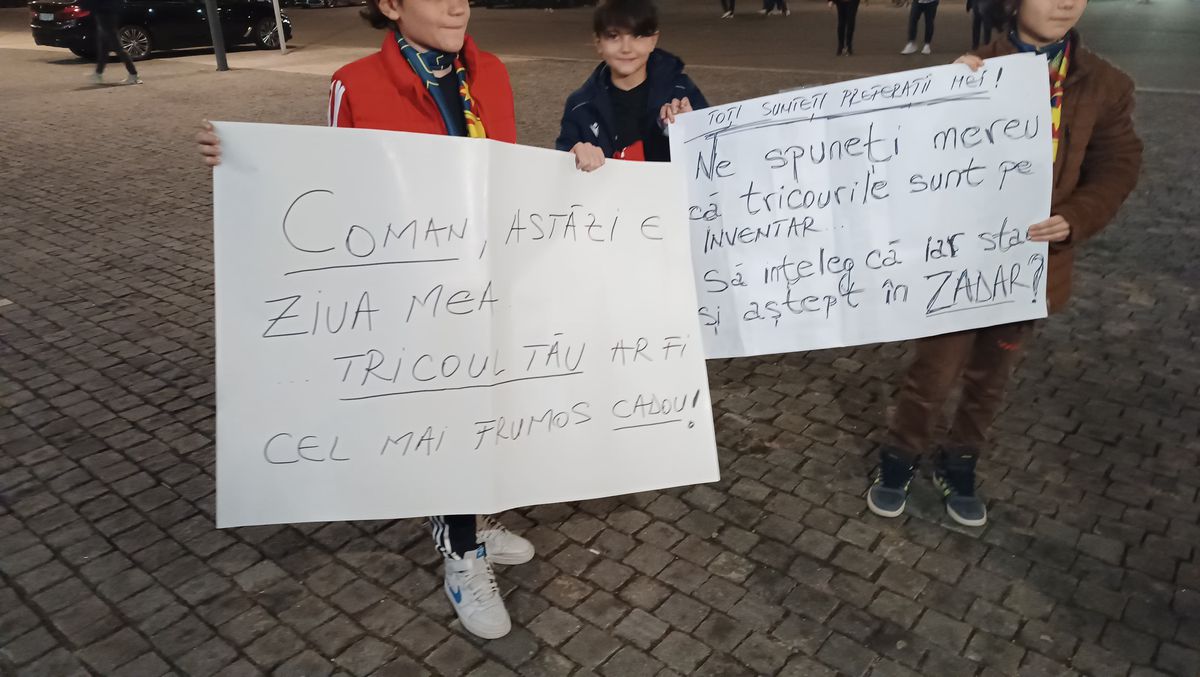 COMAN, ASTĂZI E
ZIUA MEA
... TRICOUL TĂU AR FI
CEL MAI FRUMOS CADOU!
TOȚI SUNTEȚI PREFERAȚII MEI!
Ne spuneți mereu
că tricourile sunt pe
INVENTAR...
Să înțeleg că iar stau
și aștept în ZADAR?